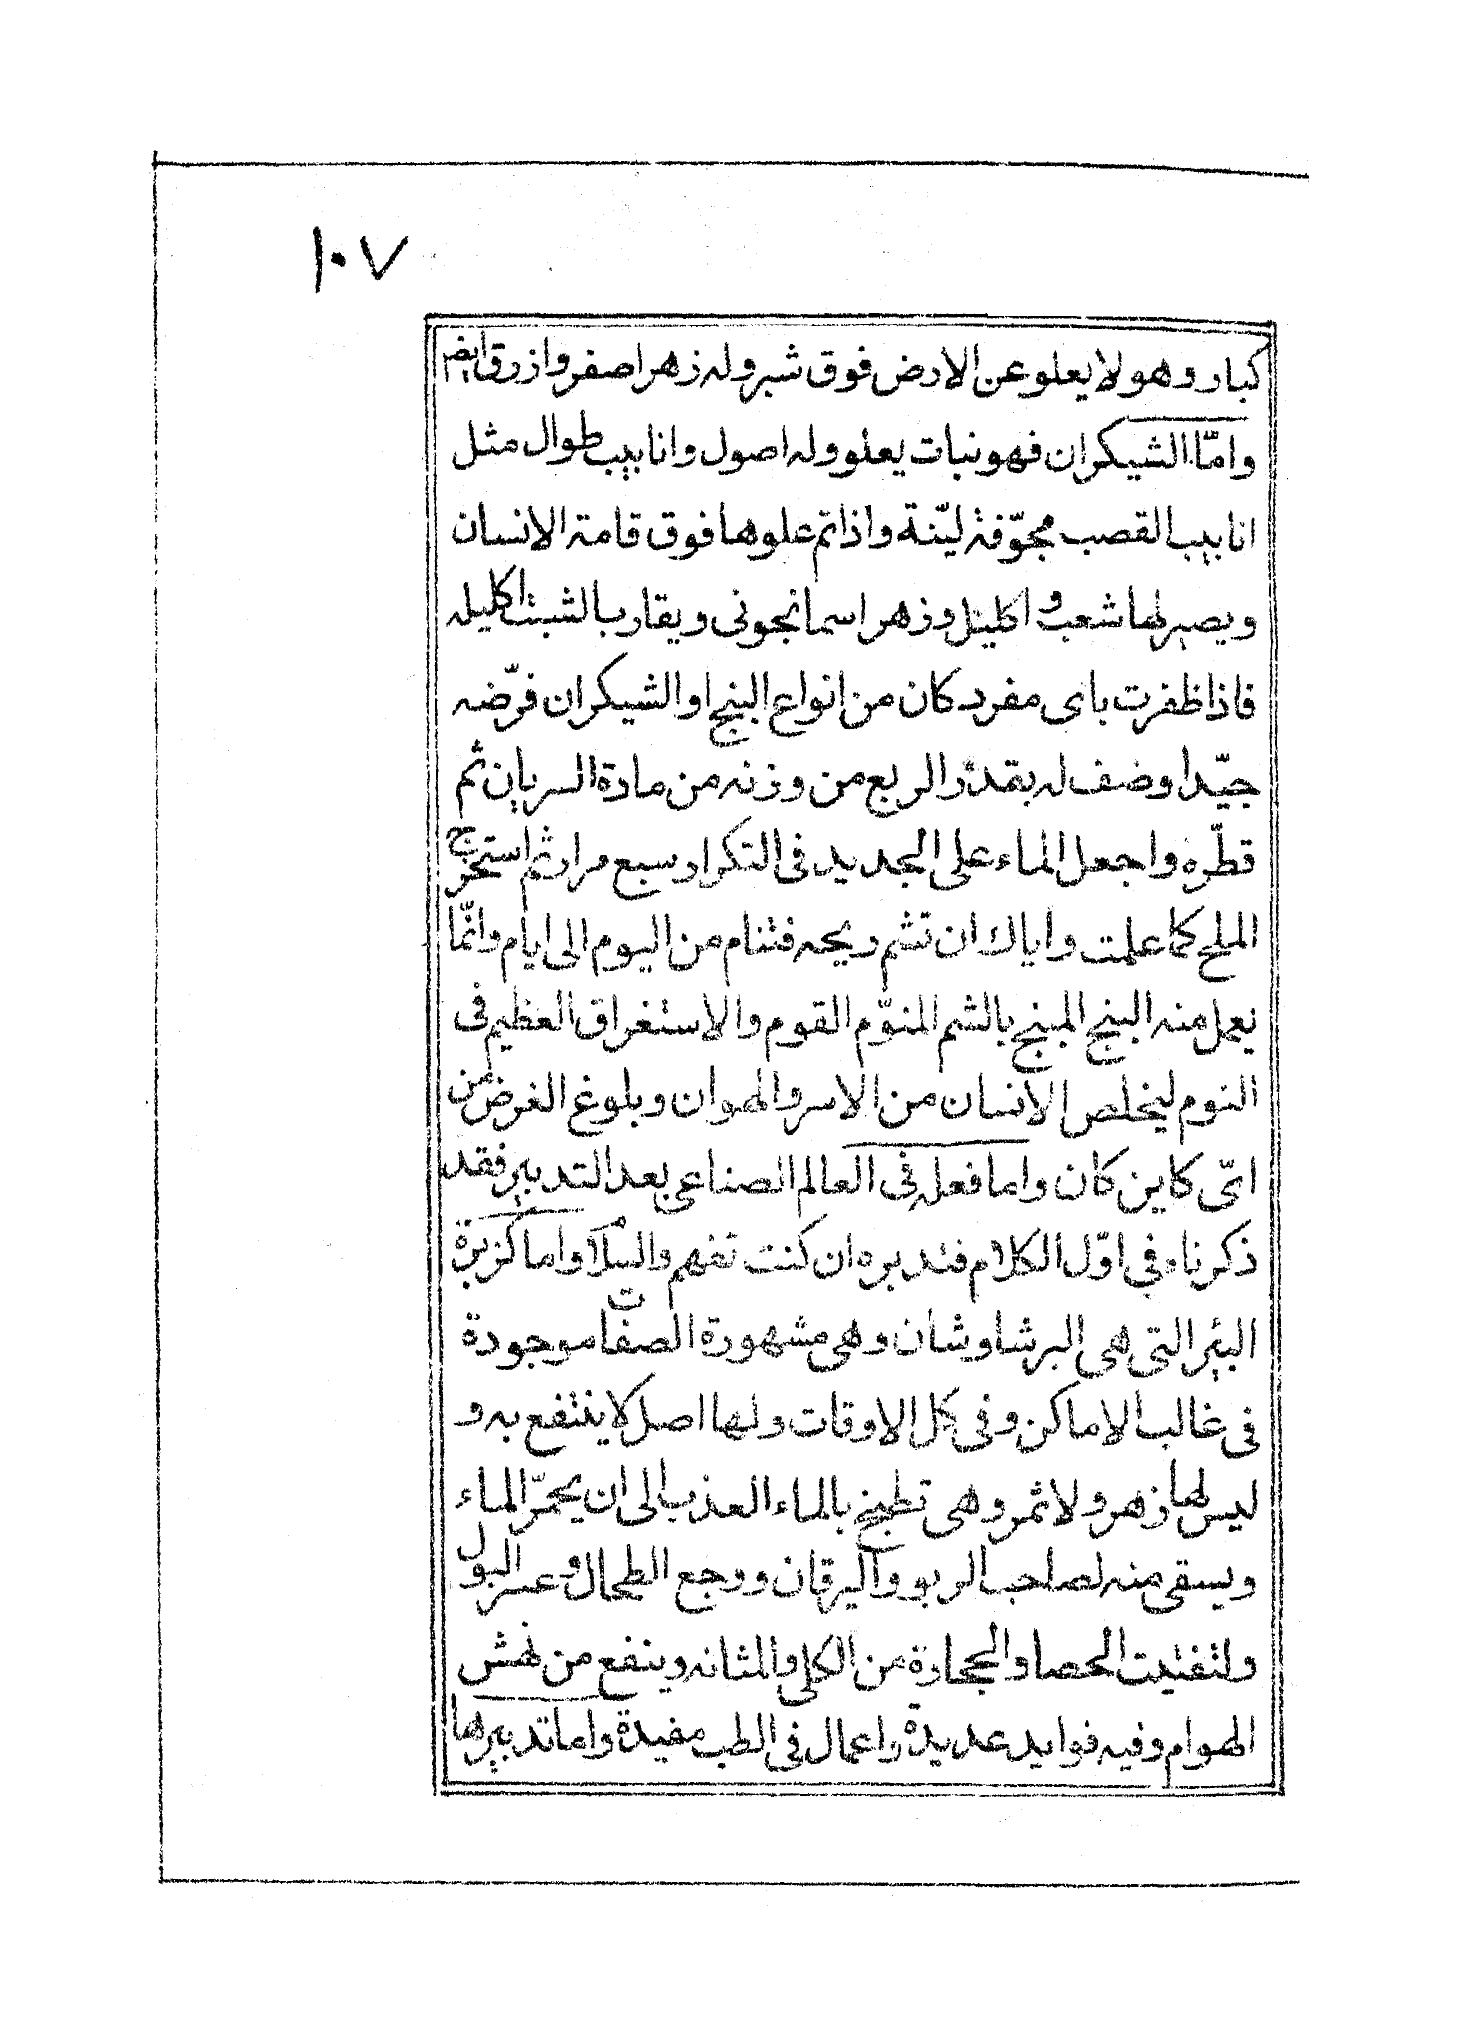 ١٠٧
كبار وهو لا يعلو عن الارض فوق شبر وله زهر اصفر وازرق ايضا
وامّا الشيكران فهو نبات يعلو وله اصول وانابيب طوال مثل
انابيب القصب مجوّفة ليّنة واذا تم علوها فوق قامة الانسان
ويصير لها شعب و اكليل وزهر اسمانجونى ويقارب الشبث اكليله
فاذا ظفرت باى مفرد كان من انواع البنج او الشيكران فرّضه
جيّدا وضف له بقدر الربع من وزنه من مادة السريان ثم
قطّره واجعل الماء على الجديد فى التكرار سبع مرار ثم استخرج
الملح كما علمت واياك ان تشم ريحه فتنام من اليوم الى ايام وانّما
يعمل منه البنج المبنج بالشم المنوّم القوم والاستغراق العظيم فى
النوم ليخلص الانسان من الاسر والهوان وبلوغ الغرض من
اىّ كاين كان واما فعله فى العالم الصناعى بعد التدبير فقد
ذكرناه فى اوّل الكلام فتدبره ان كنت تفهم والسلام واما كزبرة
البئر التى هى البرشاوشان وهى مشهورة الصفات موجودة
فى غالب الاماكن وفى كل الاوقات ولها اصل لا ينتفع به و
ليس لها زهر ولا ثمر وهى تطبخ بالماء العذب الى ان يحمرّ الماء
ويسقى منه لصاحب الربو واليرقان ووجع الطحال وعسر البول
ولتفتيت الحصا والحجارة من الكلى والمثانه وينفع من نهش
الهوام وفيه فوايد عديدة واعمال فى الطب مفيدة واما تدبيرها